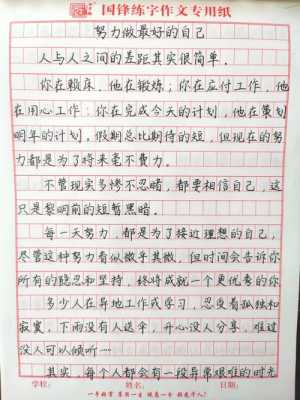 国锋练字作文专用纸
努力做最好的自己
人与人之间的差距其实很简单.
你在赖床,他在锻炼;你在应付工作,他
在用心工作;你在完成今天的计划,他在策划
明年的计划。假期总比期待的短,但现在的努
力都是为了将来毫不费力。
不管现实多惨不忍睹,都要相信自己,这
只是黎明前的短暂黑暗.
每一天努力,都是为了接近理想的自己,
尽管这种努力看似微乎其微,但时间会告诉你
所有的隐忍和坚持,终将成就一个更优秀的你.
多少人在异地工作或学习,忍受着孤独和
寂寞,下雨没有人送伞,开心没人分享,难过
没人可以倾听……
其实,每个人都会有一段异常艰难的时光
学校: 姓名: 日期: